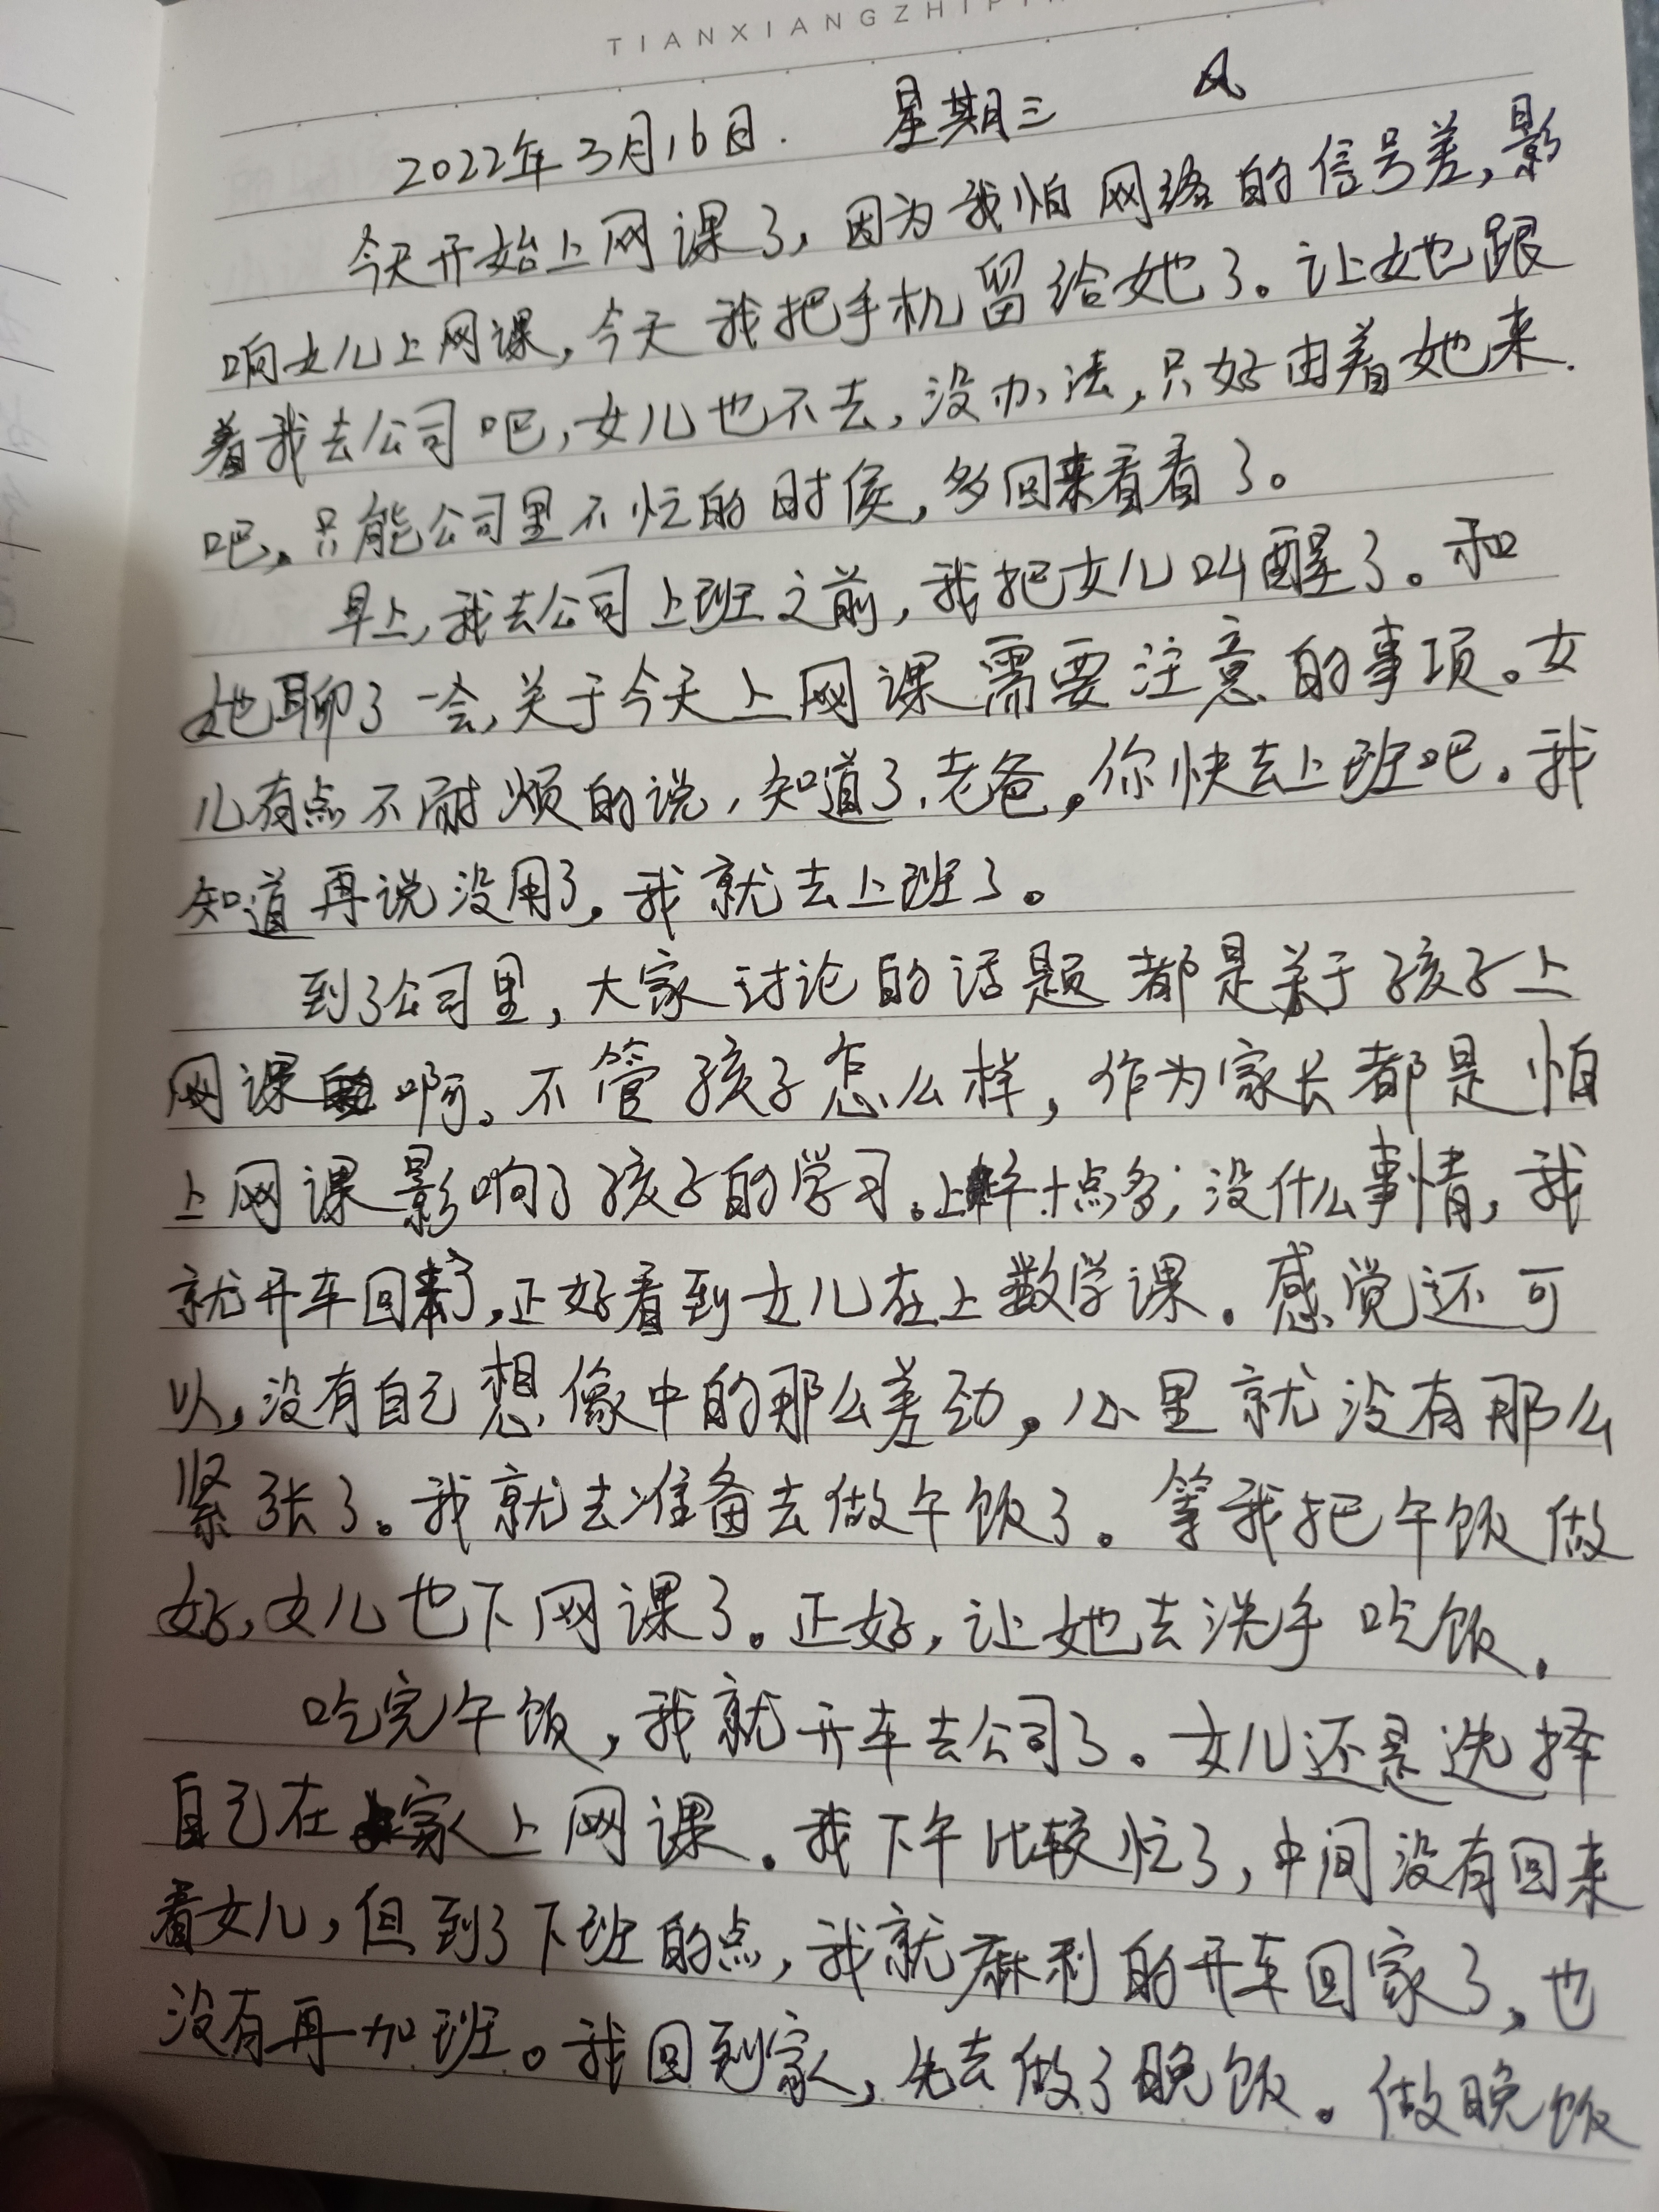 TIANXIANGZHIPIN
2022年3月16日. 星期三 风
今天开始上网课了,因为我怕网络的信号差,影
响女儿上网课,今天我把手机留给她了。让她跟
着我去公司吧,女儿也不去,没办法,只好由着她来
吧。只能公司里不忙的时候,多回来看看了。
早上,我去公司上班之前,我把女儿叫醒了。和
她聊了一会,关于今天上网课需要注意的事项。女
儿有点不耐烦的说,知道了,老爸。你快去上班吧。我
知道再说没用了。我就去上班了。
到了公司里,大家讨论的话题都是关于孩子上
网课啊。不管孩子怎么样,作为家长都是怕
上网课影响了孩子的学习。上午十点多,没什么事情,我
就开车回来了,正好看到女儿在上数学课。感觉还可
以,没有自己想像中的那么差劲。心里就没有那么
紧张了。我就去准备去做午饭了。等我把午饭做
好,女儿也下网课了。正好,让她去洗手吃饭。
吃完午饭,我就开车去公司了。女儿还是选择
自己在家上网课。我下午比较忙了,中间没有回来
看女儿,但到了下班的点,我就麻利的开车回家了,也
没有再加班。我回到家,先去做了晚饭。做晚饭